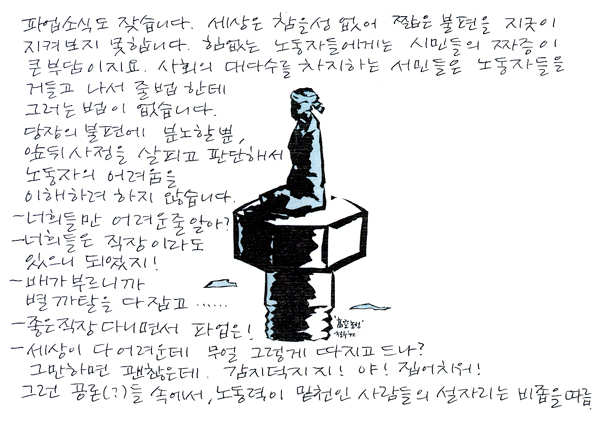 파업소식도 잦습니다. 세상은 참을성 없어 짧은 불편을 지긋이
지켜보지 못합니다. 힘없는 노동자들에게는 시민들의 짜증이
큰부담이지요. 사회의 대다수를 차지하는 서민들은 노동자들을
거들고 나서 줄법 한데
그러는 법이 없습니다.
당장의 불편에 분노할뿐,
앞뒤 사정을 살피고 판단해서
노동자의 어려움을
이해하려 하지 않습니다.
- 너희들만 어려운줄 알아?
- 너희들은 직장이라도
있으니 되었지!
- 배가 부르니까
별 까탈을 다 잡고 ......
- 좋은직장 다니면서 파업은!
- 세상이 다 어려운데 무얼 그렇게 따지고 드나?
그만하면 괜찮은데. 감지덕지지! 야! 집어치워!
그런 공론(?)들 속에서, 노동력이 밑천인 사람들의 설자리는 비좁을따름